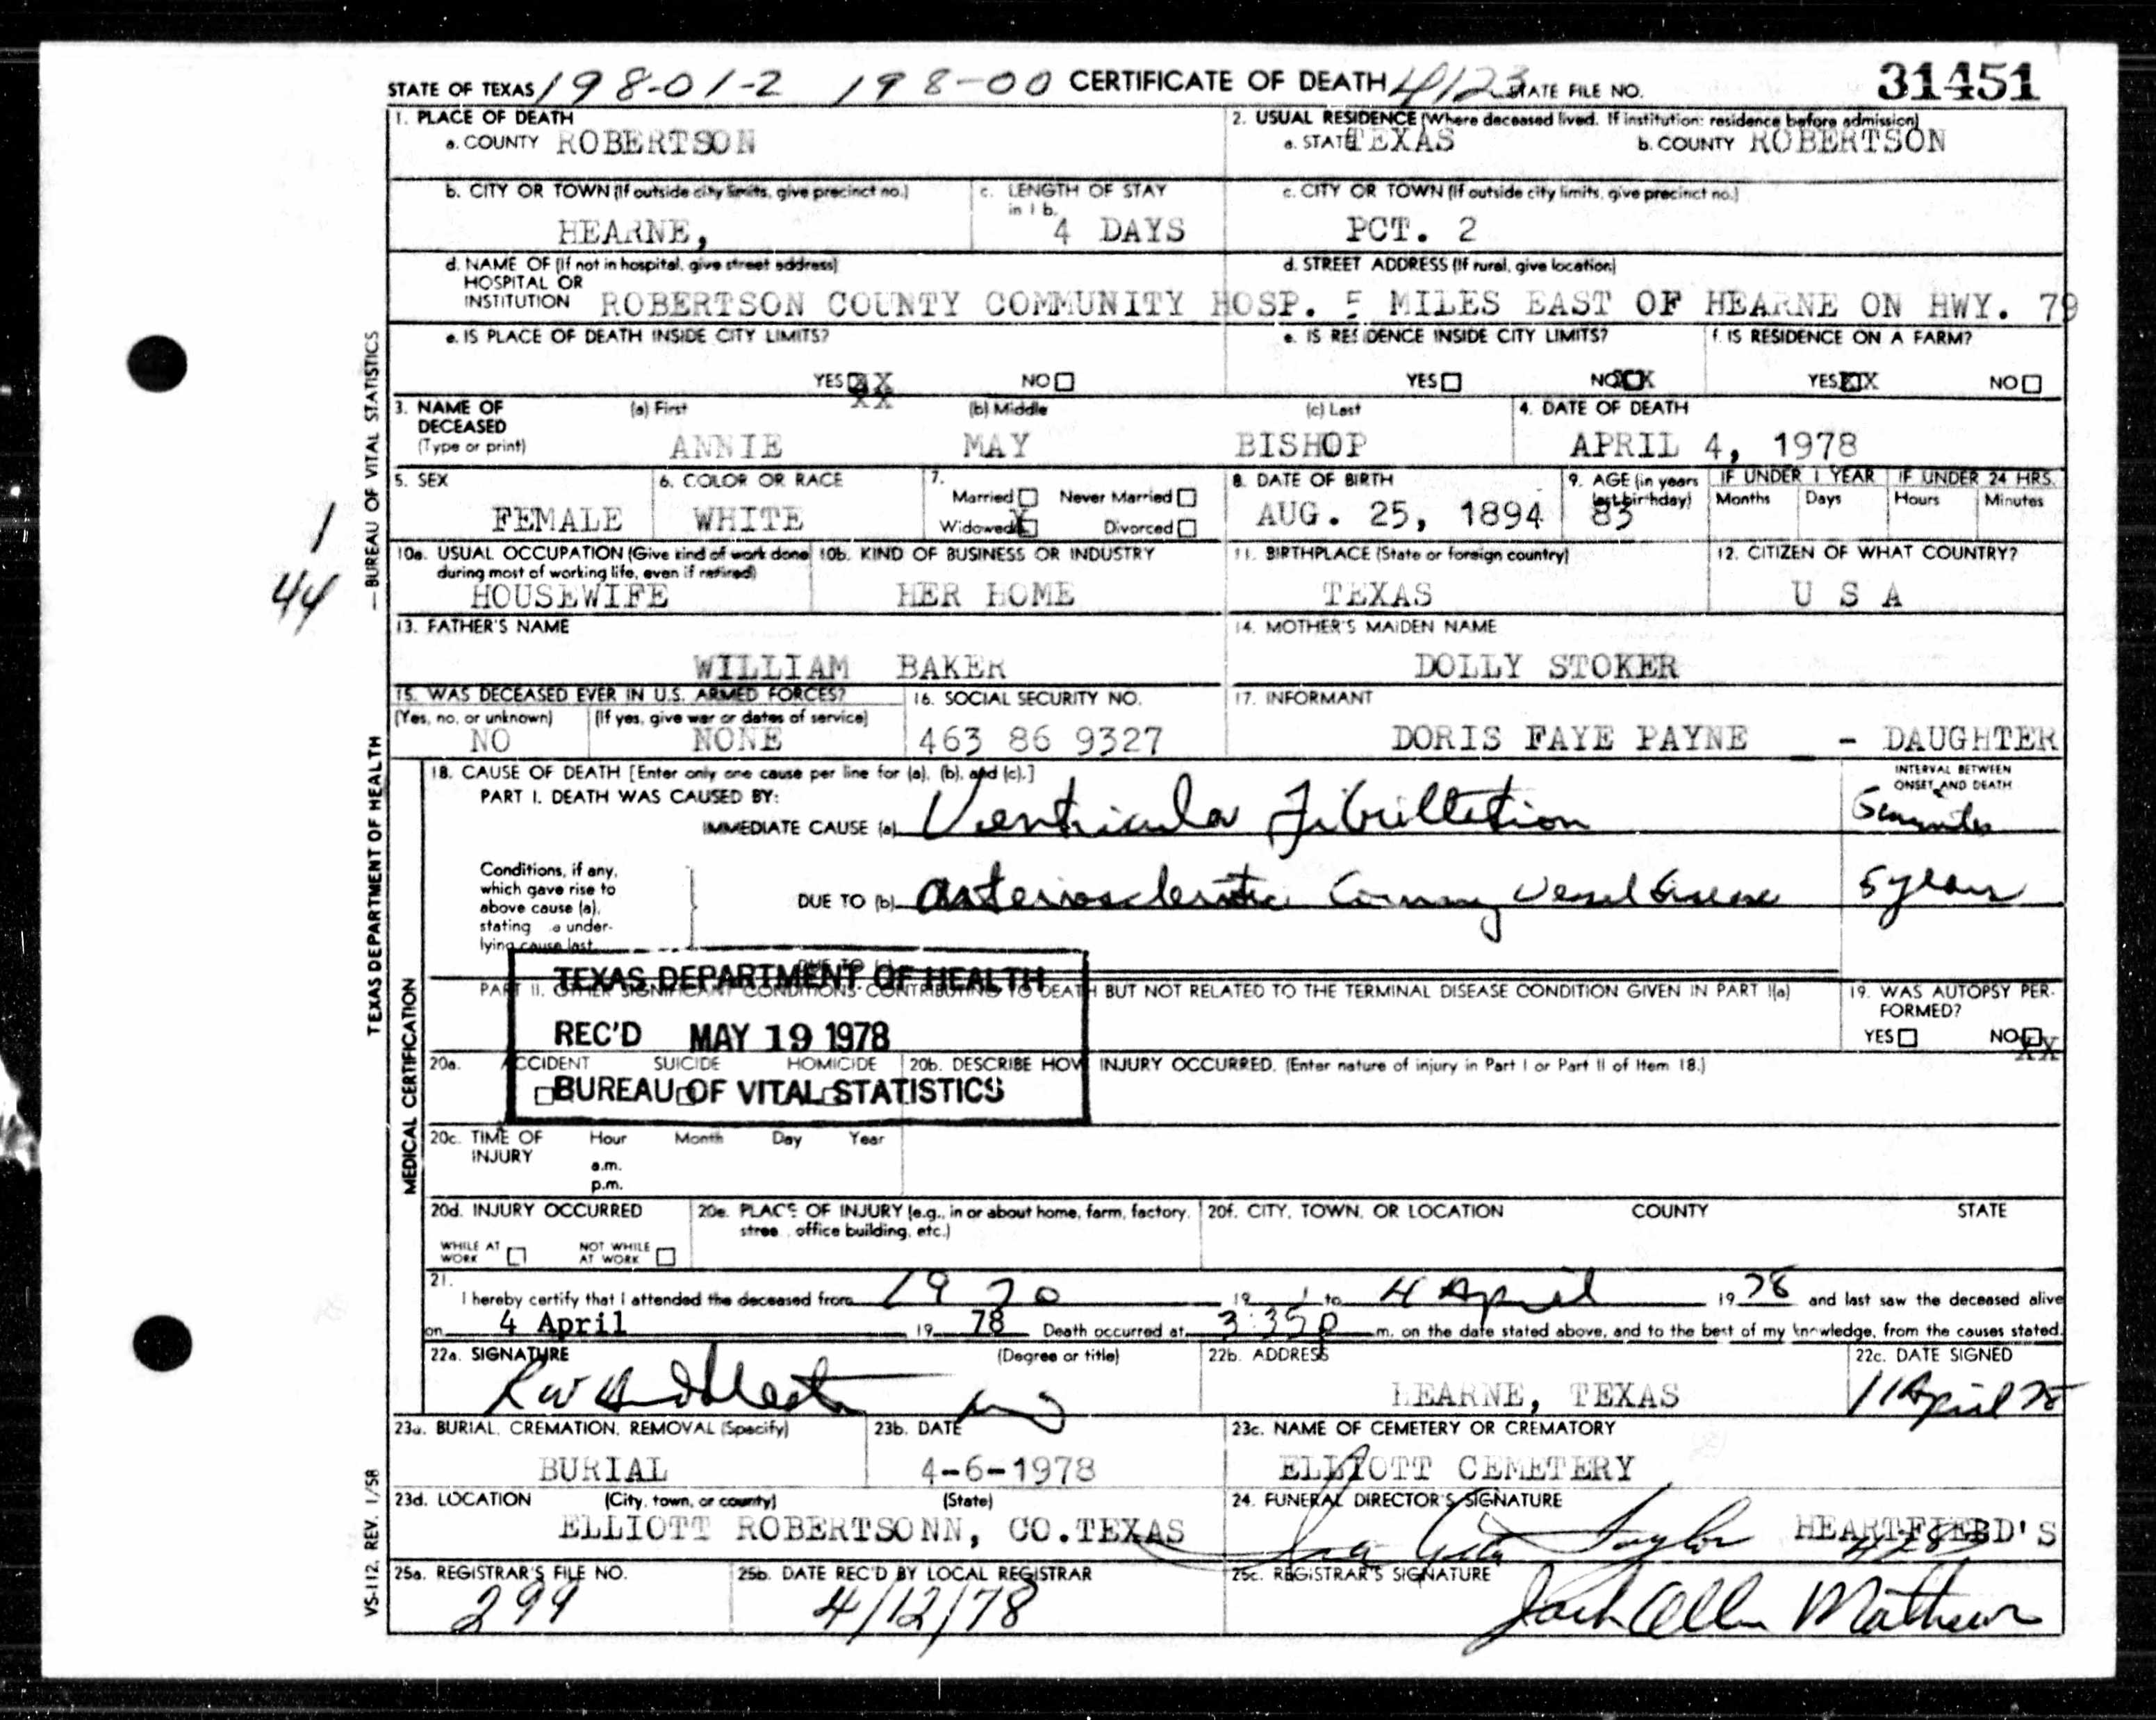 STATE OF TEXAS 198-01-2 198-00 CERTIFICATE OF DEATH 4123 STATE FILE NO. 31451
1. PLACE OF DEATH
a. COUNTY ROBERTSON
2. USUAL RESIDENCE (Where deceased lived. If institution: residence before admission)
a. STATE TEXAS b. COUNTY ROBERTSON
b. CITY OR TOWN (If outside city limits, give precinct no.)
HEARNE,
c. LENGTH OF STAY
in 1 b.
4 DAYS
c. CITY OR TOWN (If outside city limits, give precinct no.)
PCT. 2
d. NAME OF (If not in hospital, give street address)
HOSPITAL OR
INSTITUTION ROBERTSON COUNTY COMMUNITY HOSP.
d. STREET ADDRESS (If rural, give location)
5 MILES EAST OF HEARNE ON HWY. 79
e. IS PLACE OF DEATH INSIDE CITY LIMITS?
YES XX NO
XX
e. IS RESIDENCE INSIDE CITY LIMITS?
YES NO XX
f. IS RESIDENCE ON A FARM?
YES XX NO
3. NAME OF
DECEASED
(Type or print)
(a) First (b) Middle (c) Last
ANNIE MAY BISHOP
4. DATE OF DEATH
APRIL 4, 1978
5. SEX
FEMALE
6. COLOR OR RACE
WHITE
7.
Married Never Married
Widowed X Divorced
8. DATE OF BIRTH
AUG. 25, 1894
9. AGE (in years
last birthday)
83
IF UNDER 1 YEAR IF UNDER 24 HRS.
Months Days Hours Minutes
10a. USUAL OCCUPATION (Give kind of work done
during most of working life, even if retired)
HOUSEWIFE
10b. KIND OF BUSINESS OR INDUSTRY
HER HOME
11. BIRTHPLACE (State or foreign country)
TEXAS
12. CITIZEN OF WHAT COUNTRY?
U S A
13. FATHER'S NAME
WILLIAM BAKER
14. MOTHER'S MAIDEN NAME
DOLLY STOKER
15. WAS DECEASED EVER IN U.S. ARMED FORCES?
(Yes, no, or unknown) (If yes, give war or dates of service)
NO NONE
16. SOCIAL SECURITY NO.
463 86 9327
17. INFORMANT
DORIS FAYE PAYNE - DAUGHTER
18. CAUSE OF DEATH [Enter only one cause per line for (a), (b), and (c).]
PART I. DEATH WAS CAUSED BY:
IMMEDIATE CAUSE (a) Ventricular Fibrilltetion
INTERVAL BETWEEN
ONSET AND DEATH
5 minutes
Conditions, if any,
which gave rise to
above cause (a),
stating e under-
lying cause last.
DUE TO (b) Arteriosclerotic Coronary Vessel disease 5 years
TEXAS DEPARTMENT OF HEALTH
REC'D MAY 19 1978
BUREAU OF VITAL STATISTICS
PART II. OTHER SIGNIFICANT CONDITIONS CONTRIBUTING TO DEATH BUT NOT RELATED TO THE TERMINAL DISEASE CONDITION GIVEN IN PART I(a)
19. WAS AUTOPSY PER-
FORMED?
YES NO XX
20a. ACCIDENT SUICIDE HOMICIDE
20b. DESCRIBE HOW INJURY OCCURRED. (Enter nature of injury in Part I or Part II of Item 18.)
20c. TIME OF
INJURY
Hour Month Day Year
a.m.
p.m.
20d. INJURY OCCURRED
WHILE AT
WORK
NOT WHILE
AT WORK
20e. PLACE OF INJURY (e.g., in or about home, farm, factory,
stree office building, etc.)
20f. CITY, TOWN, OR LOCATION COUNTY STATE
21.
I hereby certify that I attended the deceased from 1970 19 , to 4 April 19 78 and last saw the deceased alive
on 4 April 19 78 Death occurred at 3:35 p m. on the date stated above, and to the best of my knowledge, from the causes stated.
22a. SIGNATURE (Degree or title)
22b. ADDRESS
HEARNE, TEXAS
22c. DATE SIGNED
11 April 78
23a. BURIAL, CREMATION, REMOVAL (Specify)
BURIAL
23b. DATE
4-6-1978
23c. NAME OF CEMETERY OR CREMATORY
ELLIOTT CEMETERY
23d. LOCATION (City, town, or county) (State)
ELLIOTT ROBERTSONN, CO.TEXAS
24. FUNERAL DIRECTOR'S SIGNATURE
Taylor HEARTFIELD'S
25a. REGISTRAR'S FILE NO.
299
25b. DATE REC'D BY LOCAL REGISTRAR
4/12/78
25c. REGISTRAR'S SIGNATURE
Jack Allen Mathews
1
44
TEXAS DEPARTMENT OF HEALTH — BUREAU OF VITAL STATISTICS
MEDICAL CERTIFICATION
VS-112. REV. 1/58